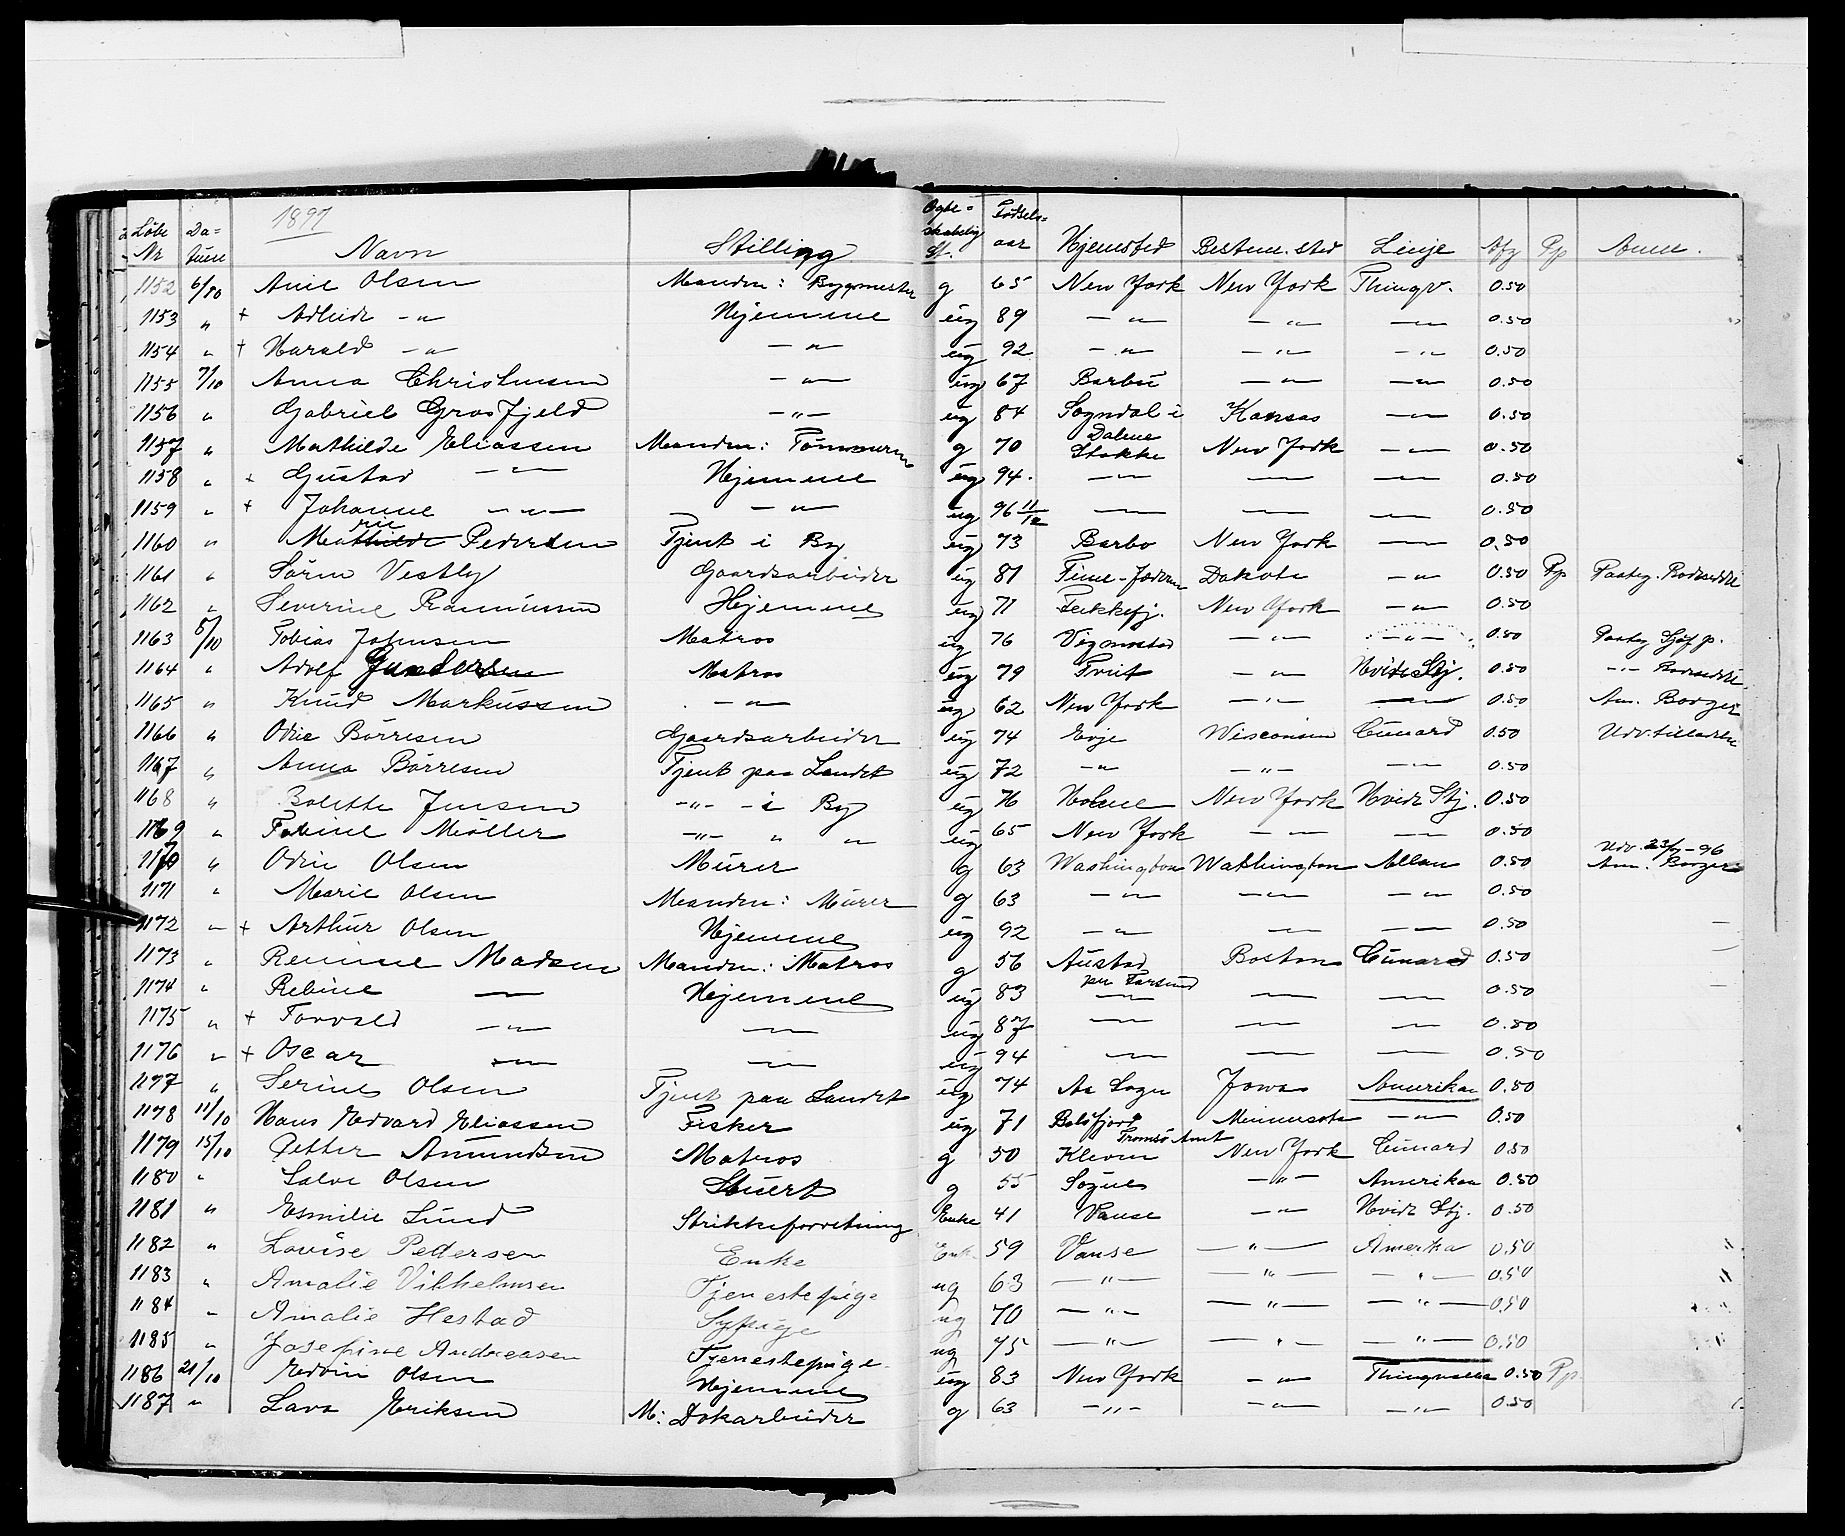 1897
Løbe Nr Da-tum Navn Stilling Ægte-skabelig St. Fødsels-aar Hjemsted Bestem. sted Linje Afg Pp Anm.
1152 6/10 Ane Olsen Manden: Bygmester g 65 New York New York Thingv. 0.50
1153 " + -"- Hjemme ug 89 -"- -"- -"- 0.50
1154 " + Harald -"- -"- ug 92 -"- -"- -"- 0.50
1155 7/10 Anna Christensen -"- ug 67 Barbu -"- -"- 0.50
1156 " Gabriel Grosfjeld -"- ug 84 Sogndal i Dalene Kansas -"- 0.50
1157 " Mathilde Eliassen Manden: Tömmerm g 70 Stokke New York -"- 0.50
1158 " + Gustav -"- Hjemme ug 94 -"- -"- -"- 0.50
1159 " + Johanne -"- -"- ug 96 11/12 -"- -"- -"- 0.50
1160 " Marie Pedersen Tjent i By ug 73 Barbo New York -"- 0.50
1161 " Sören Vestly Gaardsarbeider ug 81 Time-Jæderen Dakota -"- 0.50 Pp Paateg. Rodseddel
1162 " Severine Rasmussen Hjemme ug 71 Fekkefj. New York -"- 0.50
1163 8/10 Tobias Johnsen Matros ug 76 Vigmostad -"- -"- 0.50 Paateg Sjöf p.
1164 " Adolf Gundersen Matros ug 79 -"- Hvide Stj. 0.50 -"- Rodseddel
1165 " Knud Markussen -"- ug 62 New York -"- -"- 0.50 Am. Borger
1166 " Odin Börresen Gaardsarbeider ug 74 Evje Wisconsin Cunard 0.50 Udv. tilladelse
1167 " Anna Börresen Tjent paa Landet ug 72 -"- -"- -"- 0.50
1168 " Bolette Jensen -"- - i By ug 76 Holme New York Hvide Stj. 0.50
1169 " Möller -"- " " ug 65 New York -"- -"- 0.50
1170 " Odin Olsen Murer g 63 Washington Washington Allan 0.50 Udv. 23/7-96 Am. Borger
1171 " Marie Olsen Manden: Murer g 63 -"- -"- -"- 0.50
1172 " + Arthur Olsen Hjemme ug 92 -"- -"- -"- 0.50
1173 " Madsen Manden: Matros g 56 Austad pr Farsund Boston Cunard 0.50
1174 " Rebine -"- Hjemme ug 83 -"- -"- -"- 0.50
1175 " + Torvald -"- -"- ug 87 -"- -"- -"- 0.50
1176 " + Oscar -"- -"- ug 94 -"- -"- -"- 0.50
1177 " Serine Olsen Tjent paa Landet ug 74 Aa Sogn Jowa Amerikan 0.50
1178 11/10 Hans Edvard Eliassen Fisker ug 71 Balsfjord Tromsö Amt Minnesota -"- 0.50
1179 15/10 Petter Amundsen Matros g 50 Kleven New York Cunard 0.50
1180 " Salve Olsen Stuert g 55 Sögne -"- Amerikan 0.50
1181 " Esmilie Lund Strikkeforretning Enke 41 Vanse -"- Hvide Stj. 0.50
1182 " Lovise Pedersen Enke Enk. 59 Vanse -"- Amerika 0.50
1183 " Amalie Vilhelmsen Tjenestepige ug 63 -"- -"- -"- 0.50
1184 " Amalie Hestad Sypige ug 70 -"- -"- -"- 0.50
1185 " Josefine Andreasen Tjenestepige ug 75 -"- -"- -"- 0.50
1186 21/10 Edvin Olsen Hjemme ug 83 New York -"- Thingvalla 0.50 Pp.
1187 " Lava Eriksen M: Dokarbeider g 63 -"- -"- -"- 0.50